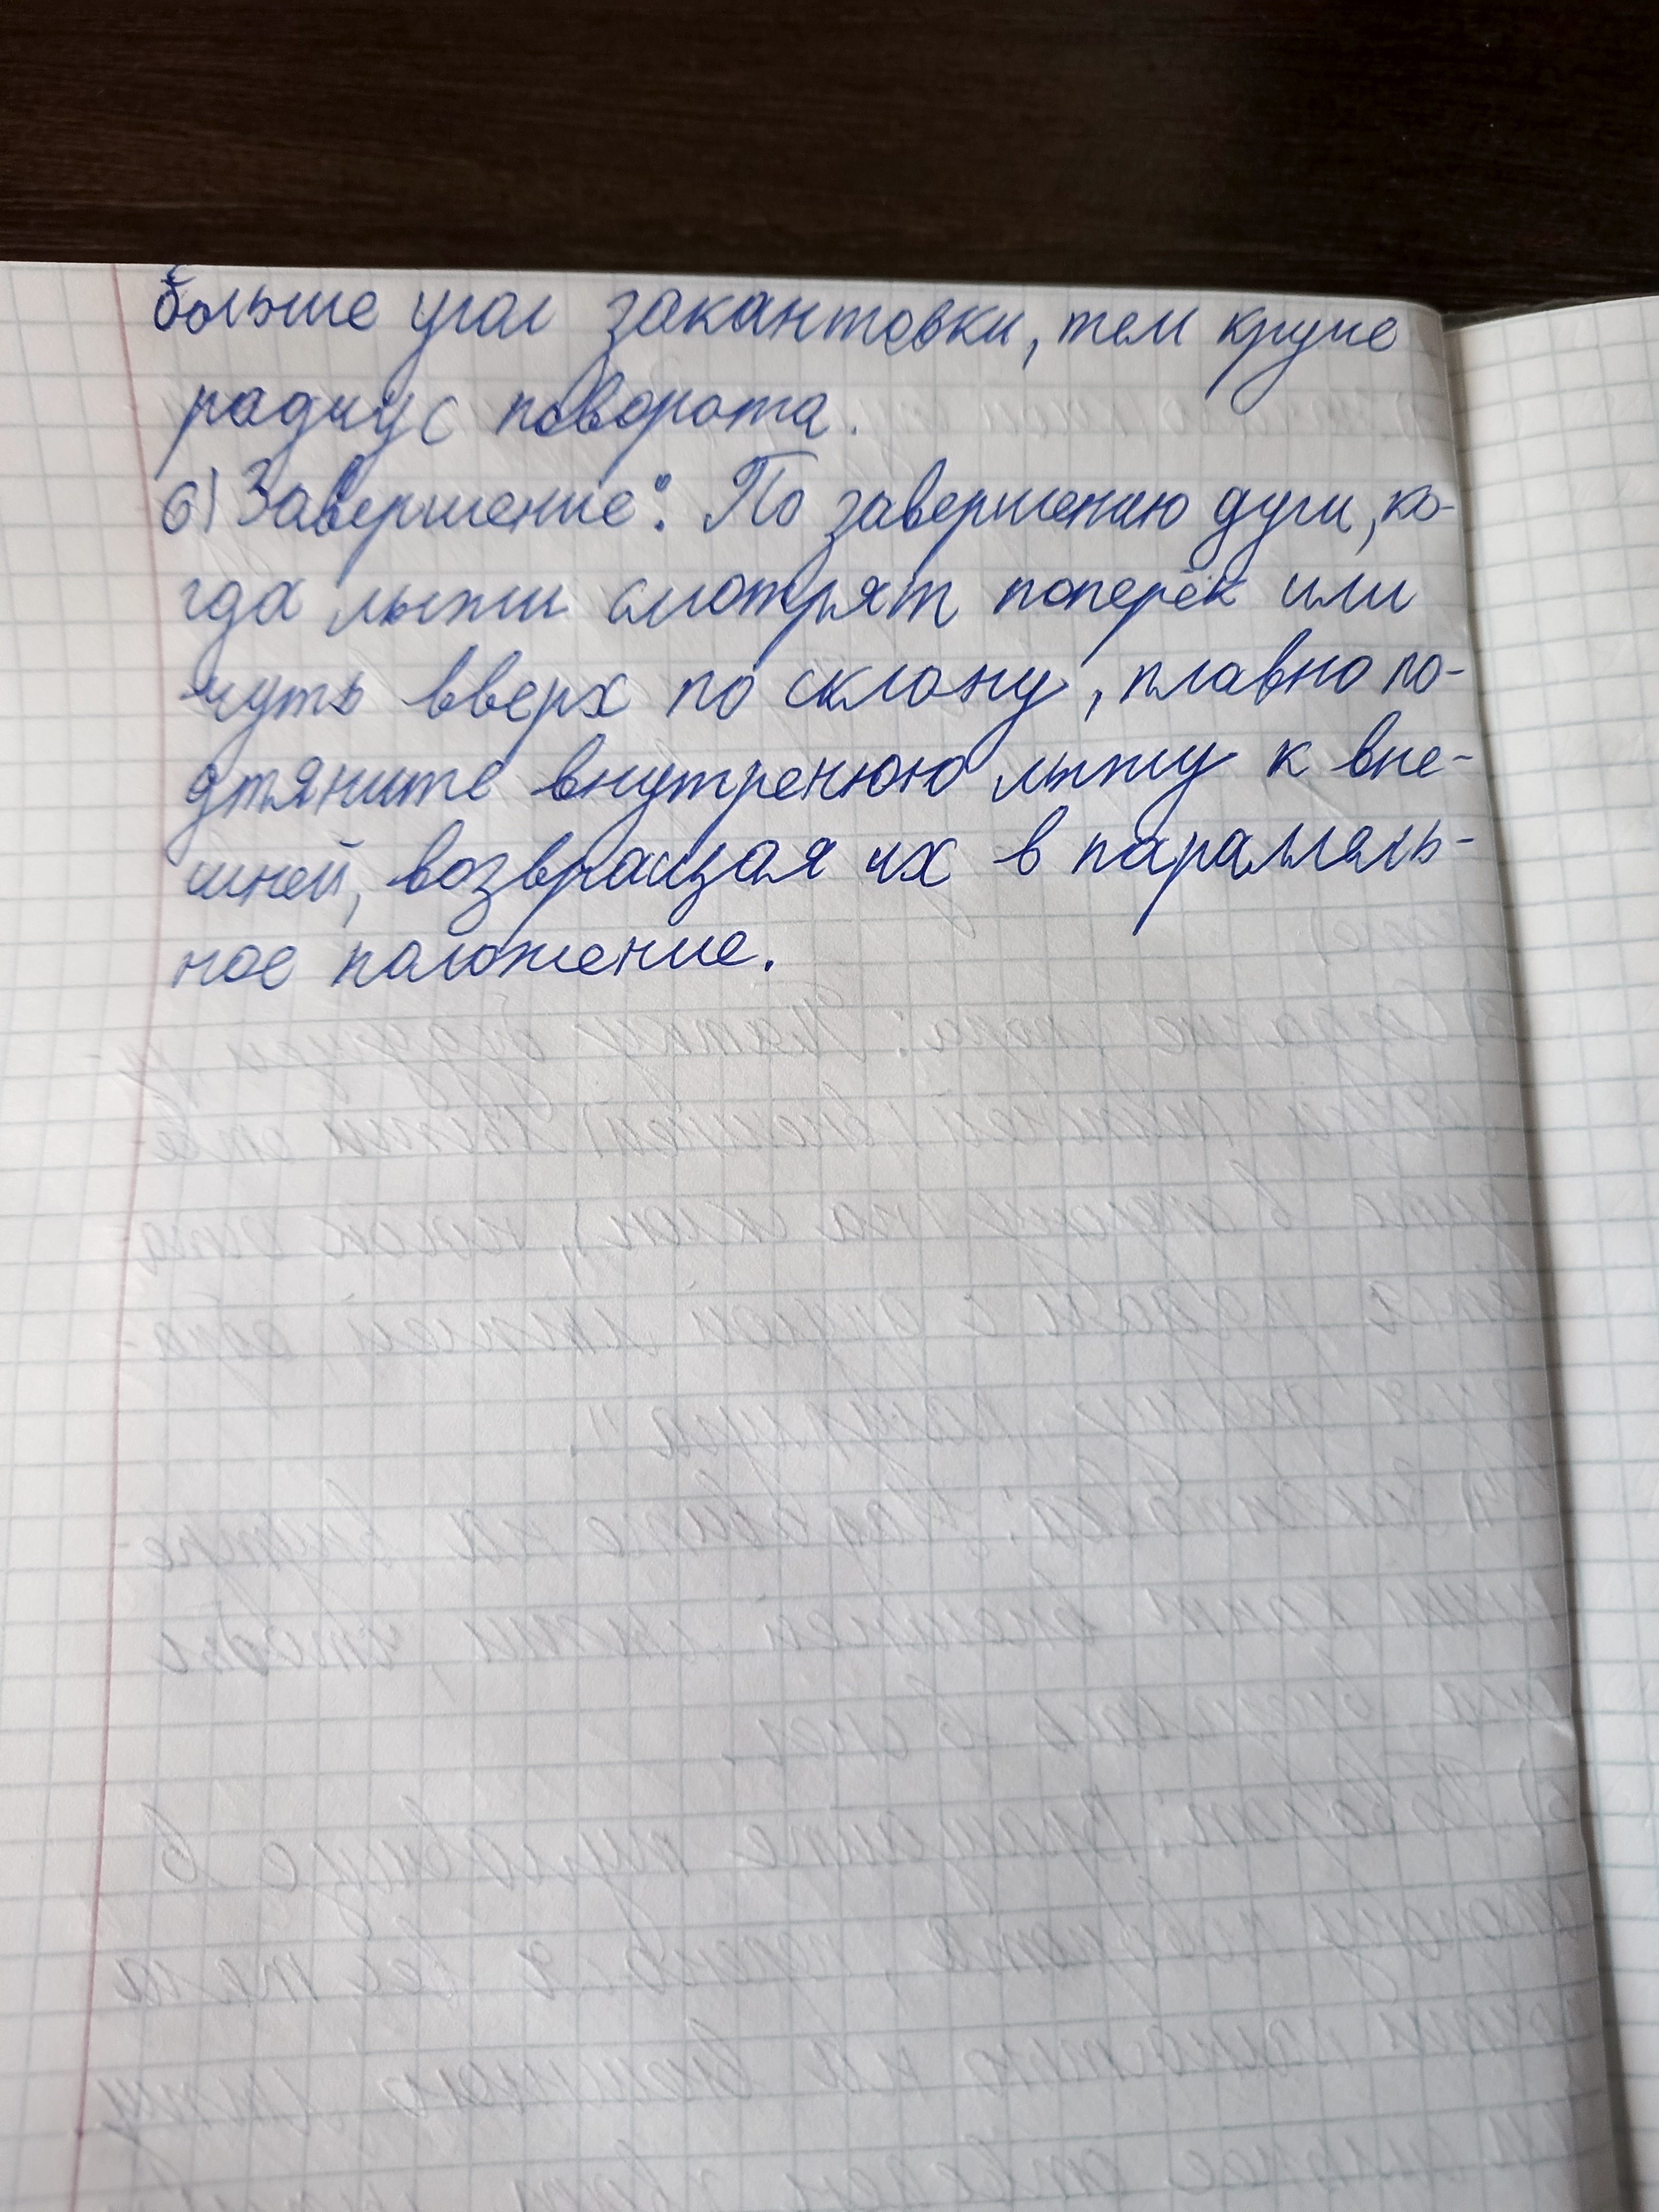 больше угол закантовки, тем круче
радиус поворота.
6) Завершение: По завершению дуги, ко-
гда лыжи смотрят поперёк или
чуть вверх по склону, плавно по-
дтяните внутренюю лыжу к вне-
шней, возвращая их в параллель-
ное положение.